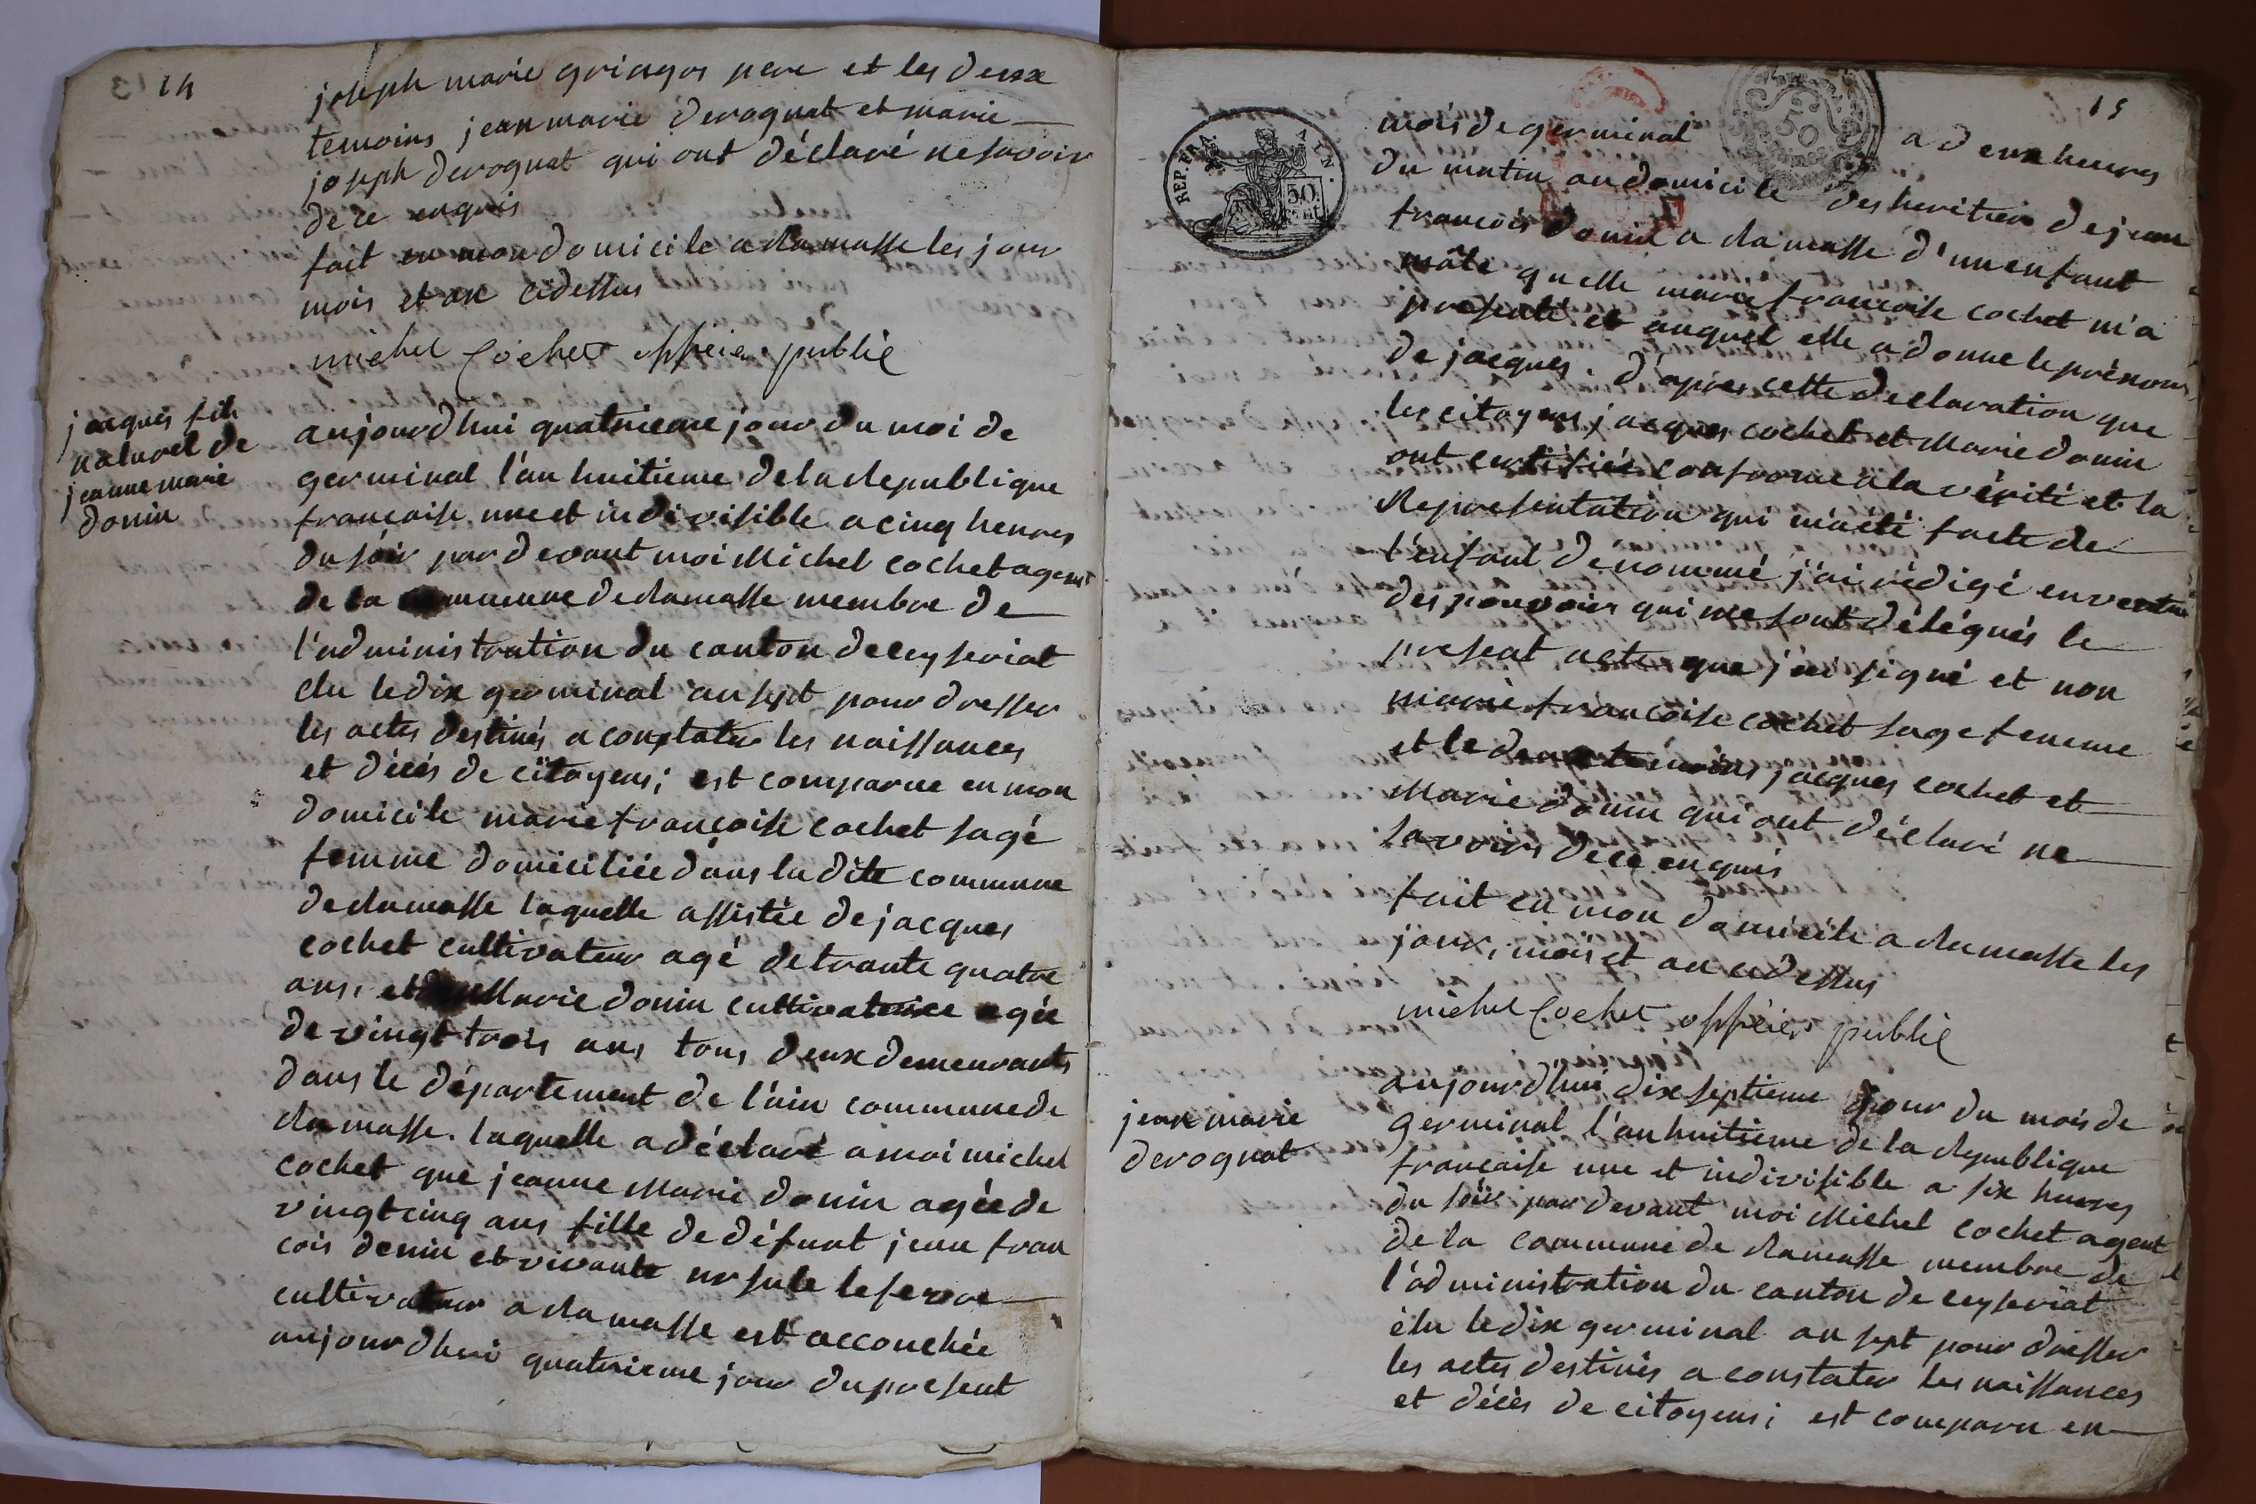 14
joseph marie gringos pere et les deux
temoins jean marie derognat et marie
joseph derognat qui ont déclaré ne savoir
de ce enquis
fait en mon domicile a ramasse les jour
mois et an cidessus
michel Cochet officier public
jacques fils
naturel de
jeanne marie
donin
aujourdhui quatrieme jour du moi de
germinal l'an huitieme de la republique
francaise une et indivisible a cinq heures
du soir par devant moi Michel cochet agent
de la commune de ramasse membre de
l'administration du canton de ceyseriat
elu le dix germinal an sept pour dresser
les actes destinés a constater les naissances
et décés de citoyens; est comparue en mon
domicile marie francoise cochet sage
femme domiciliée dans la dite commune
de ramasse laquelle assistée de jacques
cochet cultivateur agé de trante quatre
ans, et Marie donin cultivatrice agée
de vingt trois ans tous deux demeurants
dans le département de l'ain commune de
ramasse. laquelle a déclaré a moi michel
cochet que jeanne Marie donin agée de
vingt cinq ans fille de défunt jean fran
cois donin et vivante ursule lefevre
cultivateur a ramasse est accouchée
aujourdhui quatrieme jour du present
15
REP. FRA.
50
CENT.
50
mois de germinal a deux heures
du matin au domicile des heritiers de jean
francois donin a ramasse d'un enfant
mâle quelle marie francoise cochet m'a
presenté et auquel elle a donne le prénom
de jacques. d'apres cette declaration que
les citoyens jacques cochet et Marie donin
ont certifiée conforme à la vérité et la
representation qui m'a été faite de
l'enfant denommé j'ai rédigé en vertu
des pouvoirs qui me sont délégués le
present acte que j'ai signé et non
marie francoise cochet sage femme
et le deux temoins jacques cochet et
Marie donin qui ont déclaré ne
savoir de ce enquis
fait en mon domicile a ramasse les
jour, mois et an cidessus
michel Cochet officier public
jean marie
derognat
aujourd'hui dix septieme jour du mois de
germinal l'an huitieme de la republique
francaise une et indivisible a six heures
du soir par devant moi Michel cochet agent
de la commune de ramasse membre de
l'administration du canton de ceyseriat
élu le dix germinal an sept pour dresser
les actes destinés a constater les naissances
et décés de citoyens; est comparu en